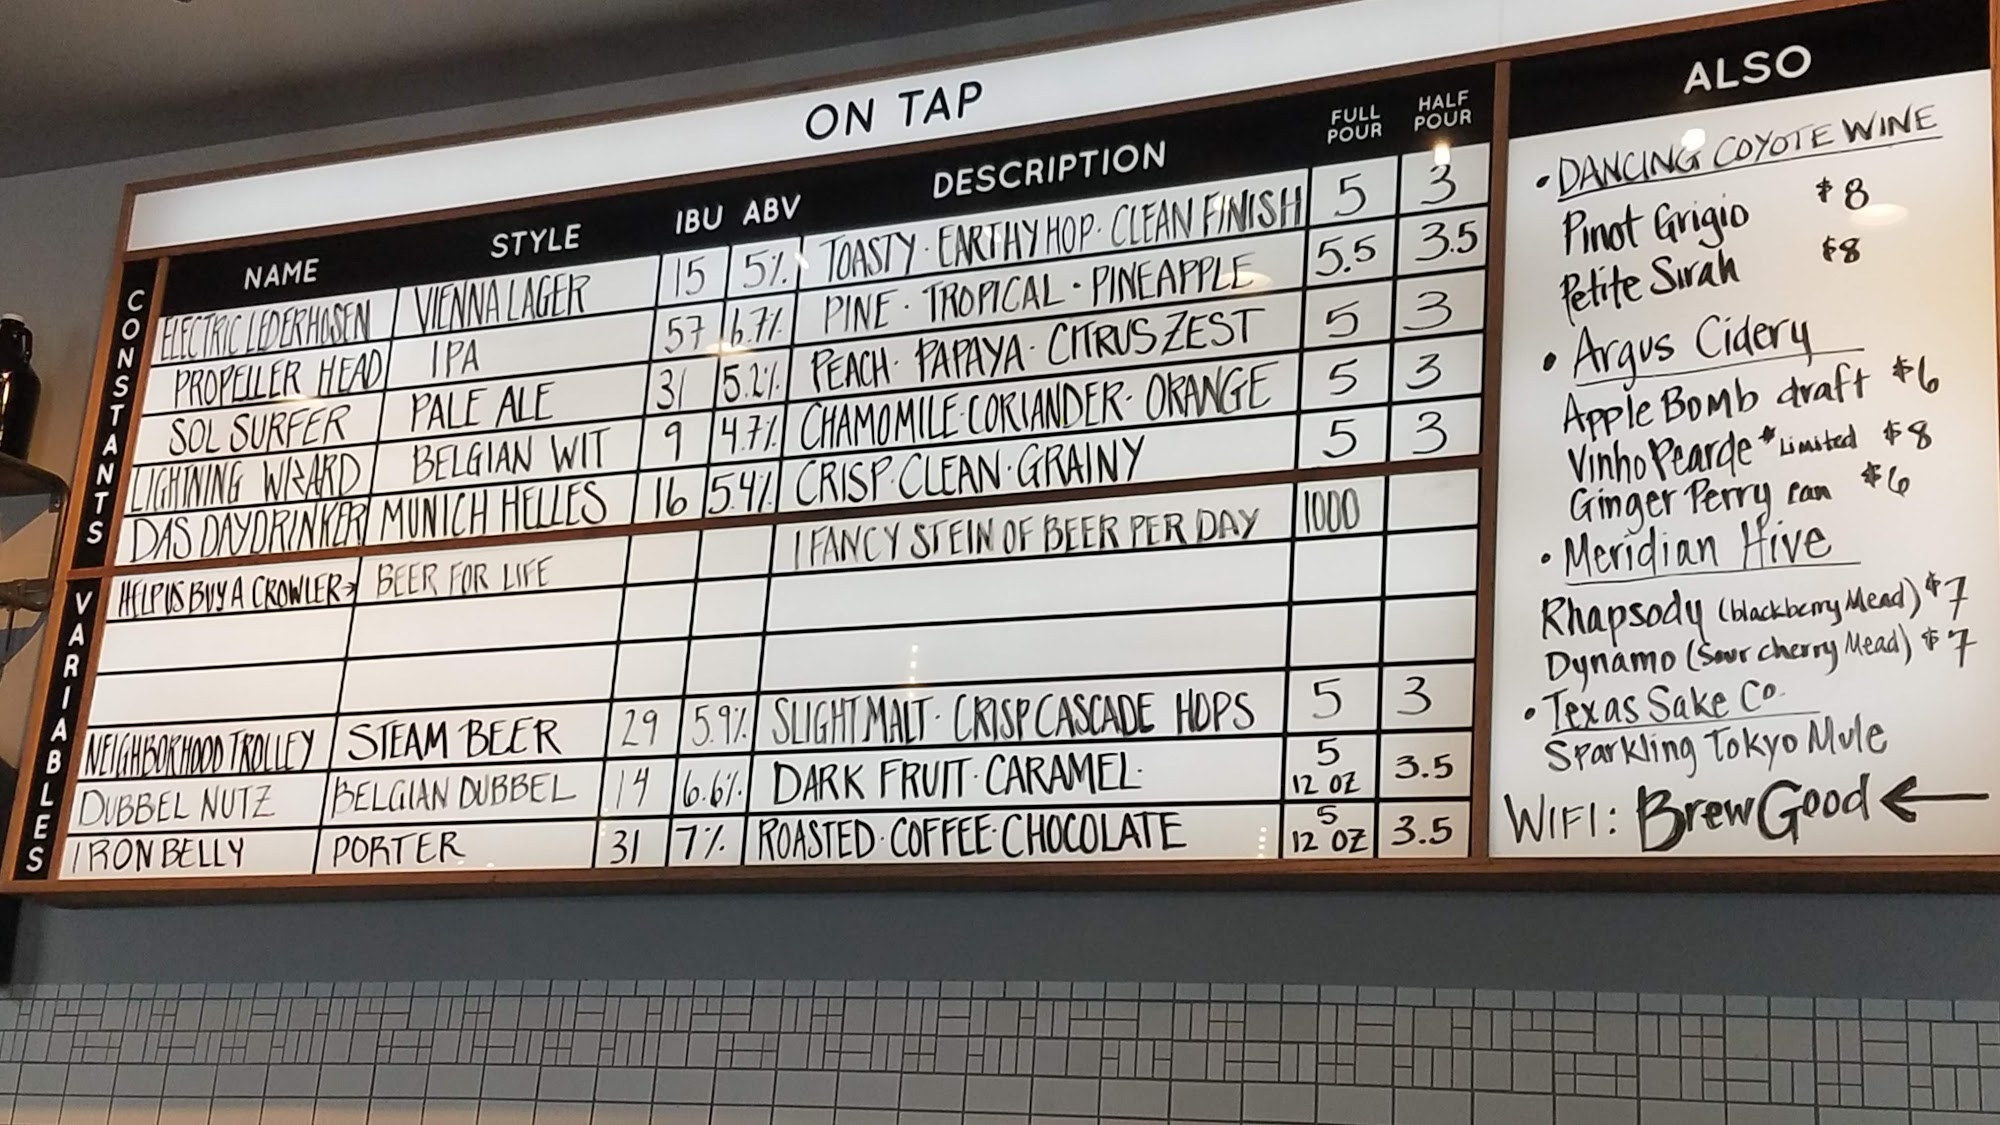 ON TAP
NAME STYLE IBU ABV DESCRIPTION FULL POUR HALF POUR
CONSTANTS
ELECTRIC LEDERHOSEN VIENNA LAGER 15 5% TOASTY · EARTHY HOP · CLEAN FINISH 5 3
PROPELLER HEAD IPA 57 6.7% PINE · TROPICAL · PINEAPPLE 5.5 3.5
SOL SURFER PALE ALE 31 5.2% PEACH · PAPAYA · CITRUS ZEST 5 3
LIGHTNING WIZARD BELGIAN WIT 9 4.7% CHAMOMILE · CORIANDER · ORANGE 5 3
DAS DAYDRINKER MUNICH HELLES 16 5.4% CRISP · CLEAN · GRAINY 5 3
VARIABLES
HELP US BUY A CROWLER→ BEER FOR LIFE 1 FANCY STEIN OF BEER PER DAY 1000
NEIGHBORHOOD TROLLEY STEAM BEER 29 5.9% SLIGHT MALT · CRISP CASCADE HOPS 5 3
DUBBEL NUTZ BELGIAN DUBBEL 19 6.6% DARK FRUIT · CARAMEL · 5 12 OZ 3.5
IRON BELLY PORTER 31 7% ROASTED · COFFEE · CHOCOLATE 5 12 OZ 3.5
ALSO
• DANCING COYOTE WINE
Pinot Grigio $8
Petite Sirah $8
• Argus Cidery
Apple Bomb draft $6
Vinho Pearde * Limited $8
Ginger Perry can $6
• Meridian Hive
Rhapsody (blackberry Mead) $7
Dynamo (Sour cherry Mead) $7
• Texas Sake Co.
Sparkling Tokyo Mule
WIFI: BrewGood ←